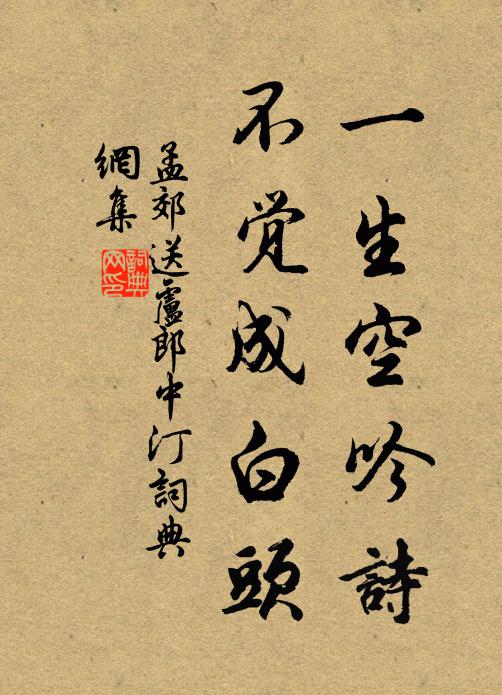 一生空吟詩
不覚成白頭
孟郊送盧郎中汀詞典
網集
詞典网印